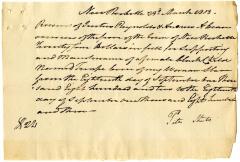 New Rochelle 28th March 1803.
Received of Justus Reynolds & Anson A
overseers of the poor of the Town of New Rochelle
Twenty four Dollars in full for Supporting
and Maintenance of a female black Child
Named born of my Woman
from the Eighteenth day of September one Thou
sand Eight hundred and two to the Eighteenth
day of September one thousand Eight hundred
and three
$24